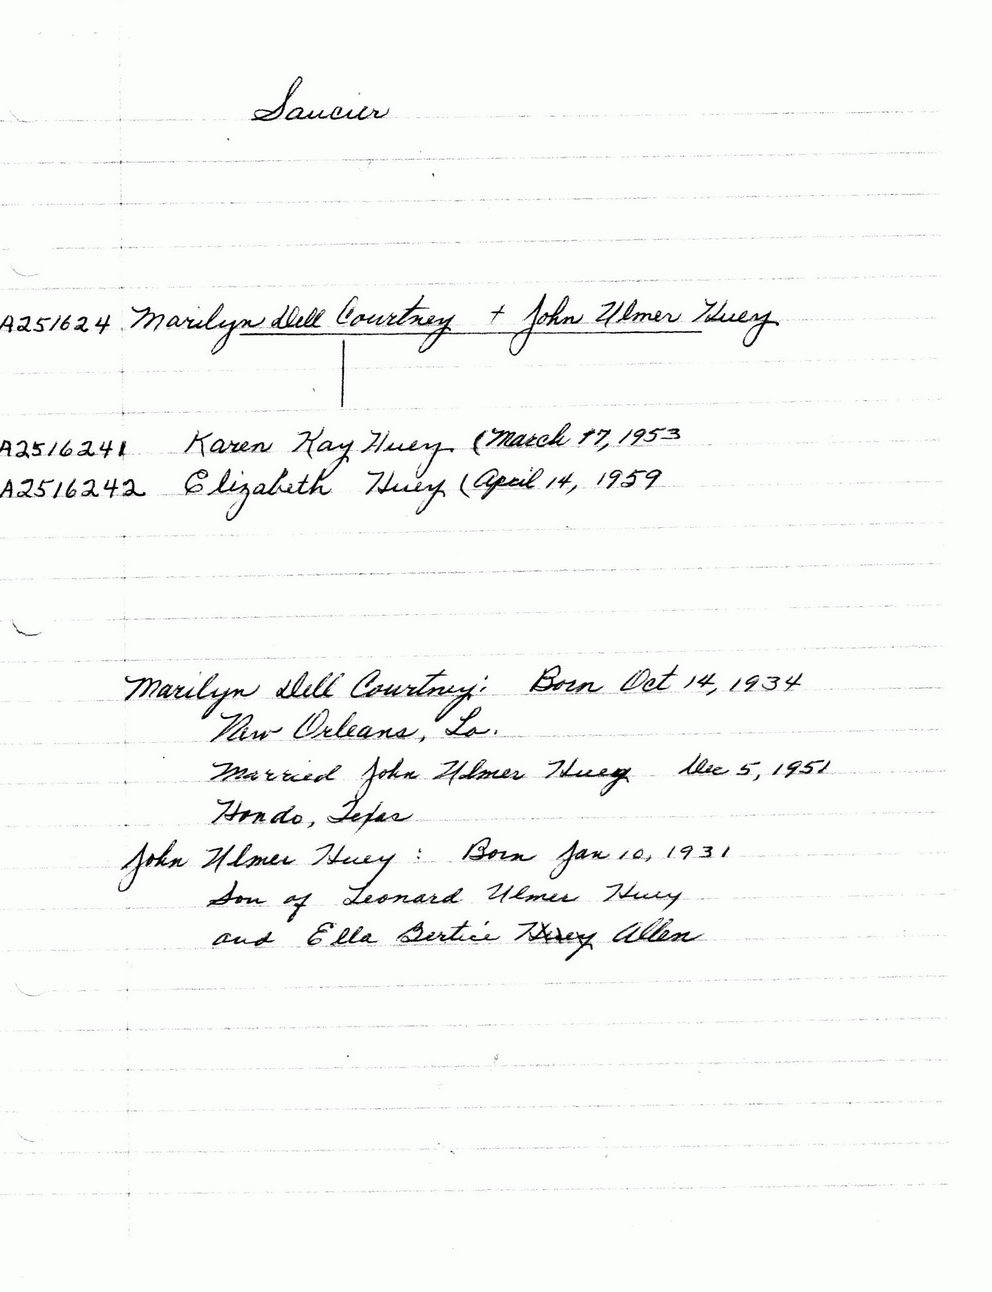 Saucier
A251624 Marilyn Dell Courtney + John Ulmer Huey
A2516241 Karen Kay Huey (March 17, 1953
A2516242 Elizabeth Huey (April 14, 1959
Marilyn Dell Courtney: Born Oct 14, 1934
New Orleans, La.
Married John Ulmer Huey Dec 5, 1951
Hondo, Texas
John Ulmer Huey : Born Jan 10, 1931
Son of Leonard Ulmer Huey
and Ella Bertice Huey Allen